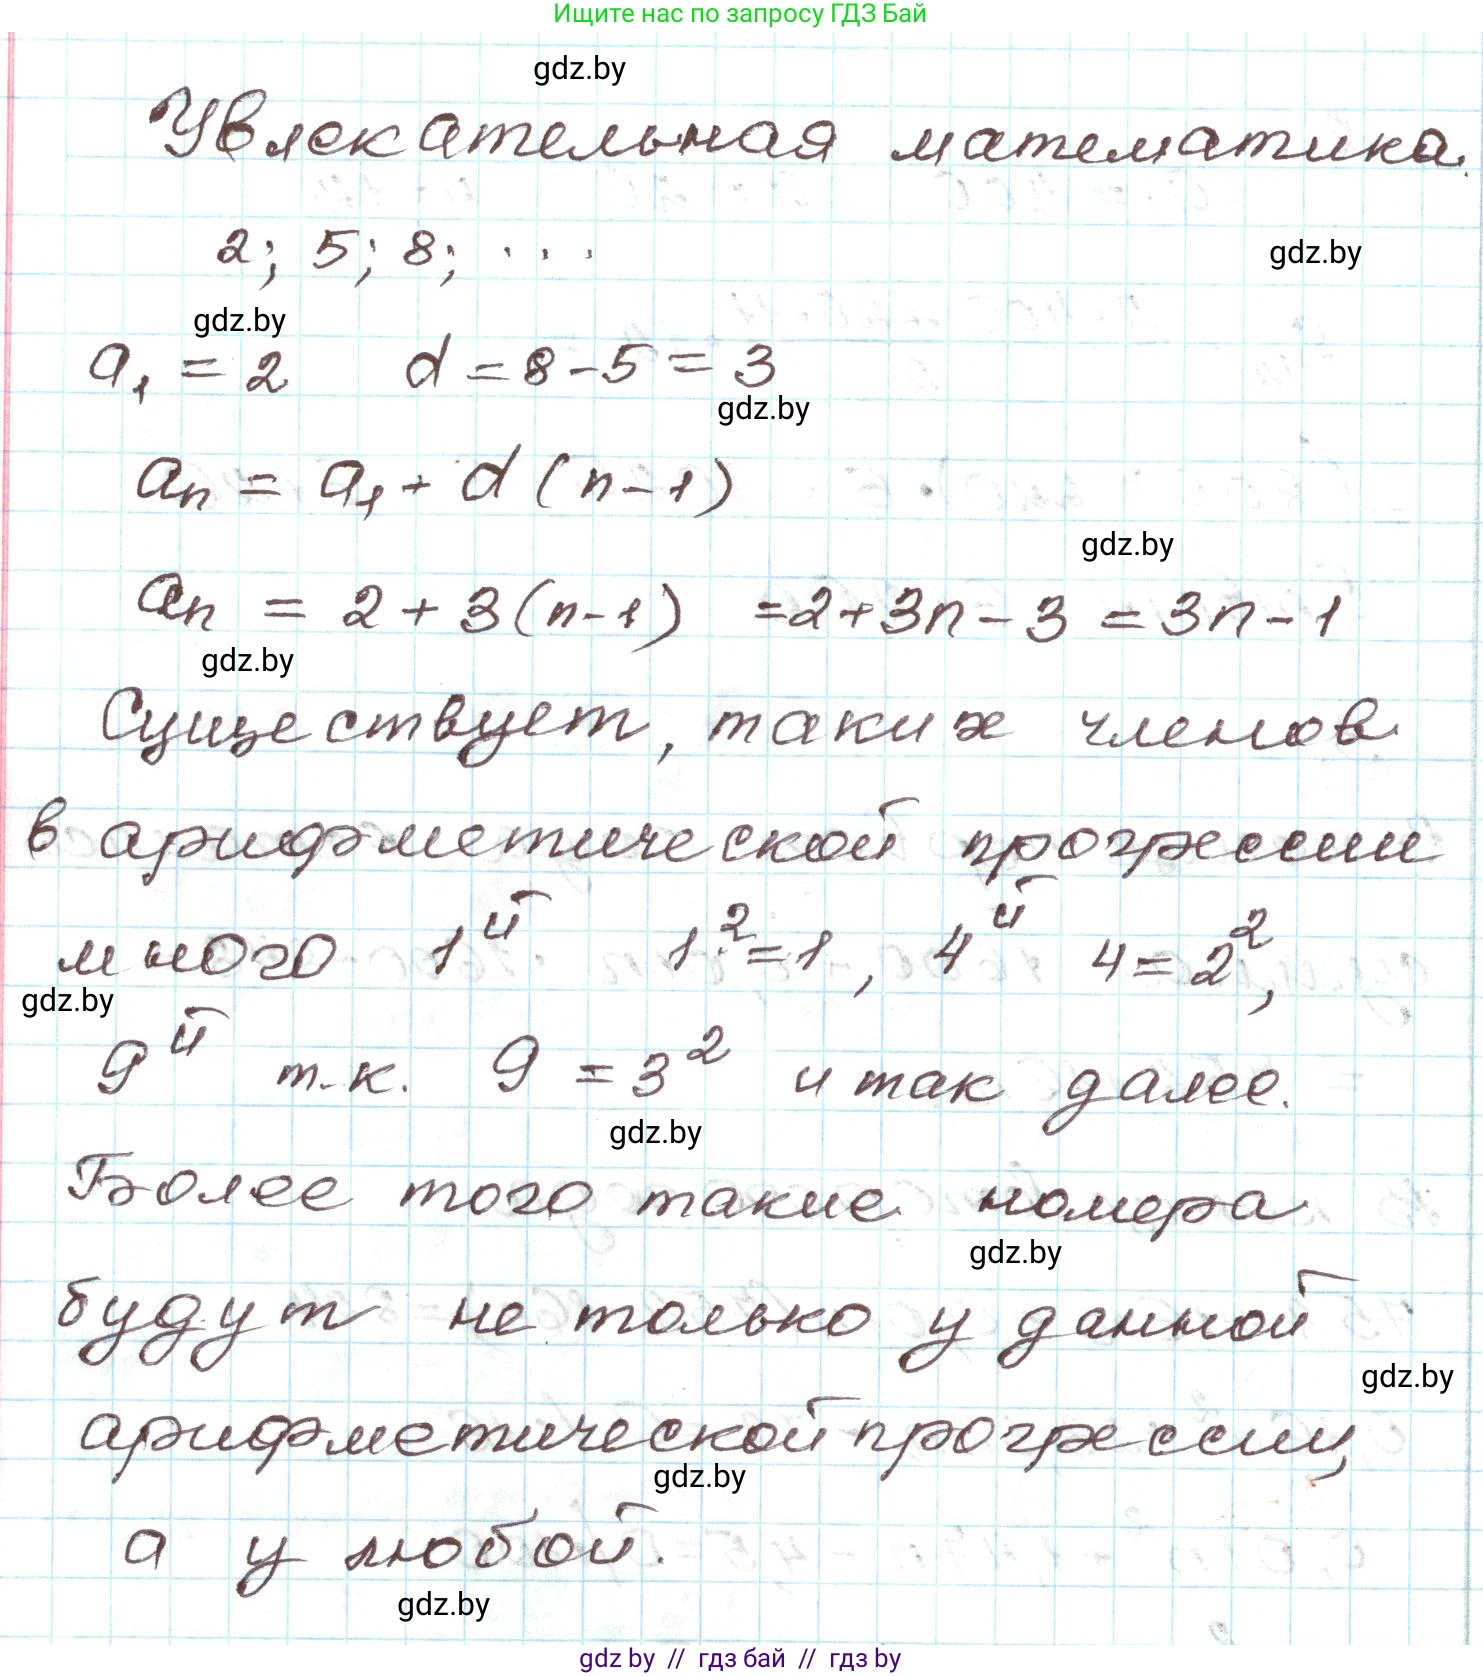 Ищите нас по запросу ГДЗ Бай
gdz.by
Увлекательная математика.
2; 5; 8; ...
gdz.by
gdz.by
a₁ = 2 d = 8 - 5 = 3
gdz.by
aₙ = a₁ + d (n - 1)
gdz.by
aₙ = 2 + 3 (n - 1) = 2 + 3n - 3 = 3n - 1
gdz.by
Существует, таких членов
в арифметической прогрессии
много 1й 1² = 1, 4й 4 = 2²,
gdz.by
9й т.к. 9 = 3² и так далее.
gdz.by
Более того такие номера
gdz.by
будут не только у данной
gdz.by
арифметической прогрессии,
gdz.by
а у любой.
gdz.by
gdz by // гдз бай // гдз by